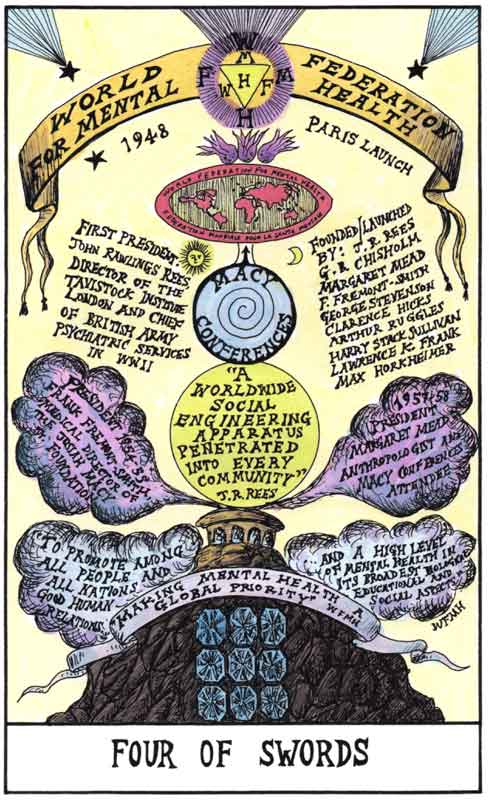 WORLD FEDERATION
FOR MENTAL HEALTH
W
M
F W H F M
H
1948
PARIS LAUNCH
WORLD FEDERATION FOR MENTAL HEALTH
FEDERATION MONDIALE POUR LA SANTE MENTALE
FIRST PRESIDENT:
JOHN RAWLINGS REES
DIRECTOR OF THE
TAVISTOCK INSTITUTE
LONDON AND CHIEF
OF BRITISH ARMY
PSYCHIATRIC SERVICES
IN WWII
MACY
CONFERENCES
FOUNDED/LAUNCHED
BY: J.R. REES
G.B. CHISHOLM
MARGARET MEAD
F. FREMONT-SMITH
GEORGE STEVENSON
CLARENCE HICKS
ARTHUR RUGGLES
HARRY STACK SULLIVAN
LAWRENCE K. FRANK
MAX HORKHEIMER
"A
WORLDWIDE
SOCIAL
ENGINEERING
APPARATUS
PENETRATED
INTO EVERY
COMMUNITY"
J.R. REES
PRESIDENT
FRANK FREMONT SMITH
MEDICAL DIRECTOR OF
THE JOSIAH MACY
FOUNDATION
1957-58
PRESIDENT
MARGARET MEAD
ANTHROPOLOGIST AND
MACY CONFERENCES
ATTENDEE
"TO PROMOTE AMONG
ALL PEOPLE AND
ALL NATIONS
GOOD HUMAN
RELATIONS
...AND A HIGH LEVEL
OF MENTAL HEALTH IN
ITS BROADEST BIOLOGICAL
EDUCATIONAL AND
SOCIAL ASPECTS"
WFMH
"MAKING MENTAL HEALTH A
GLOBAL PRIORITY" WFMH
FOUR OF SWORDS